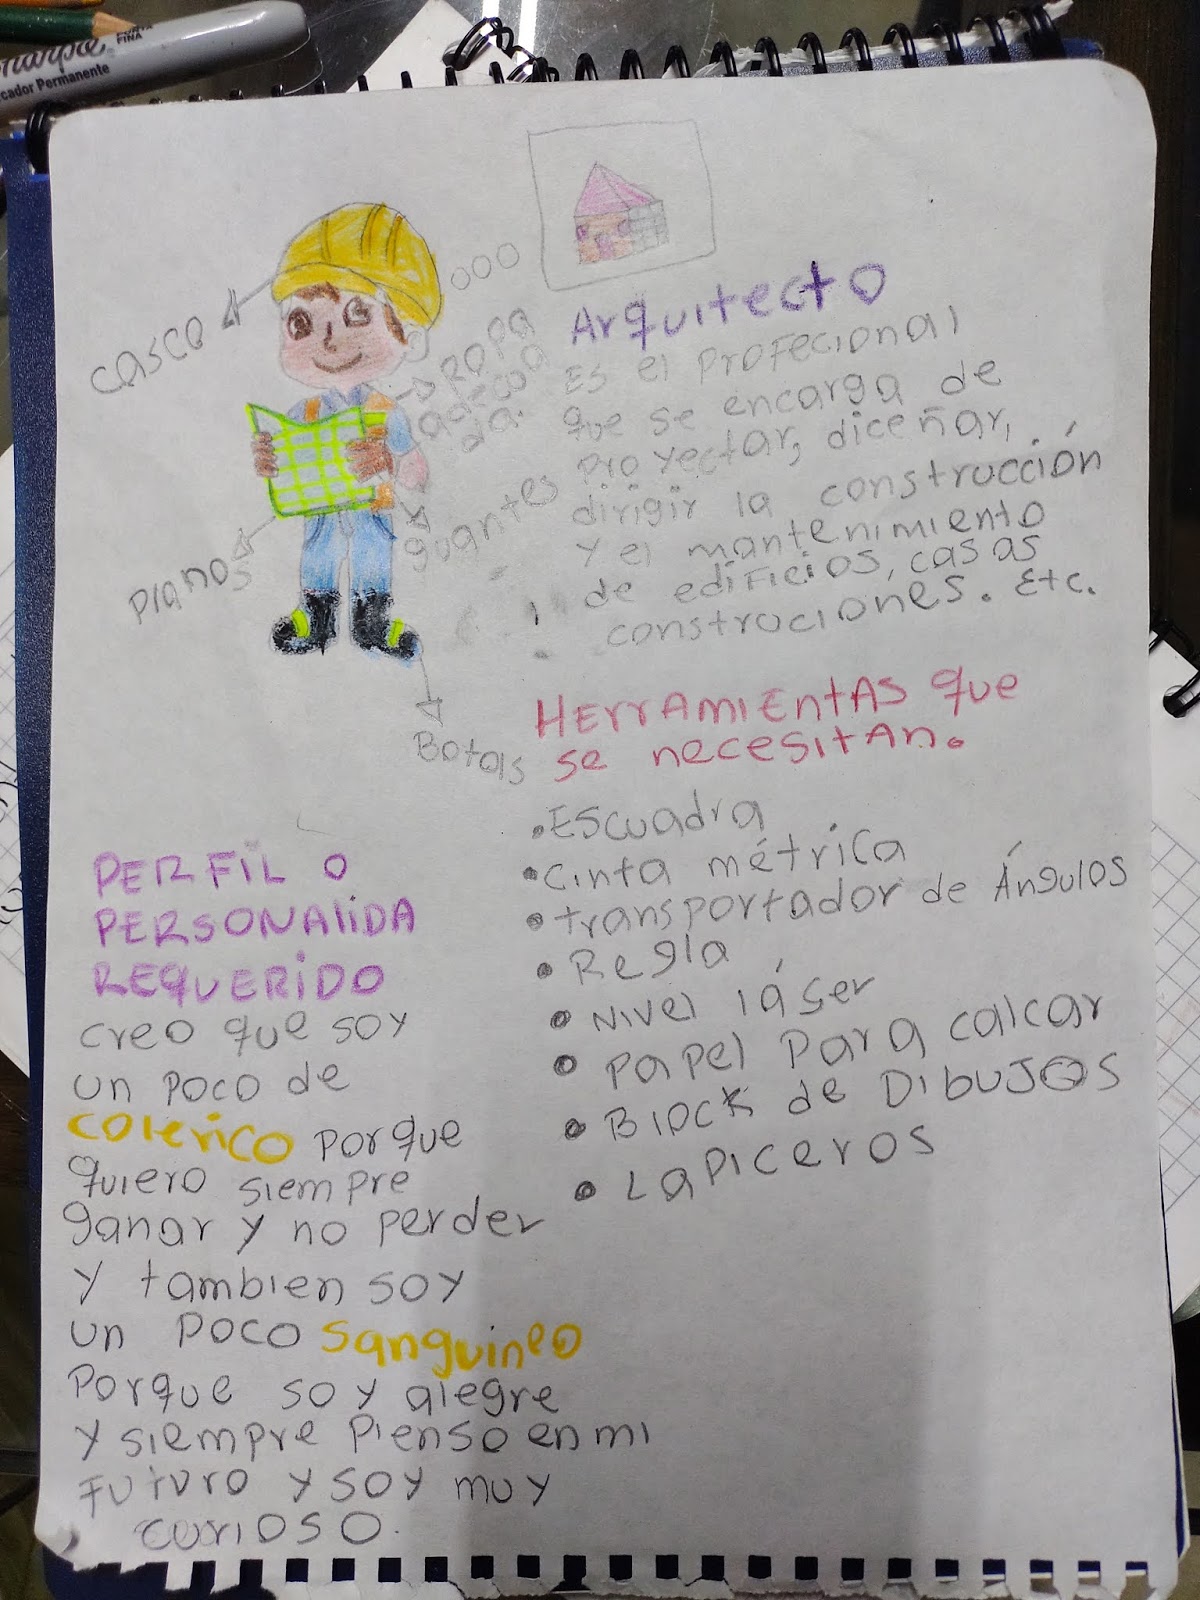 PUNTA
FINA
cador Permanente
Casco
ROPA
adecoa
da.
guantes
planos
Botas
Arquitecto
Es el profecional
que se encarga de
proyectar, diceñar,
dirigir la construcción
y el mantenimiento
de edificios, casas
construciones. Etc.
HERRAMIENTAS que
se necesitan.
•Escuadra
•Cinta métrica
•transportador de Ángulos
•Regla
•Nivel láser
•papel para calcar
•Block de DIBUJOS
•Lapiceros
PERFIL O
PERSONALIDA
REQUERIDO
creo que soy
un poco de
colerico porque
quiero siempre
ganar y no perder
y tambien soy
un poco sanguineo
porque soy alegre
y siempre pienso en mi
futuro y soy muy
curioso.